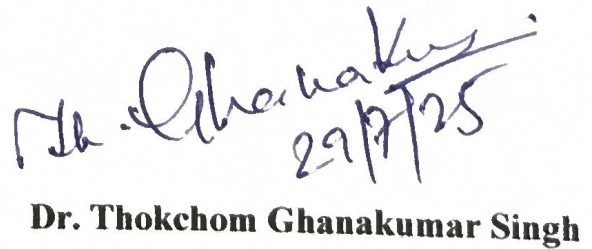 Th. Ghanakum
29/7/25
Dr. Thokchom Ghanakumar Singh